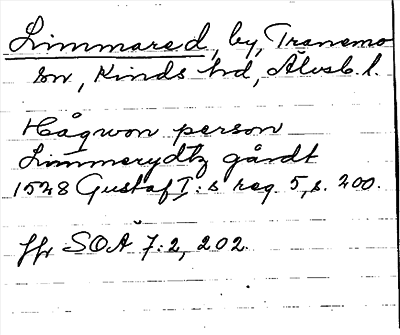 Limmared, by, Tranemo
sn, Kinds hd, Älvsb. l.
Håqwon person
Limmerydtz gårdt
1528 Gustaf I:s reg. 5, s. 200.
Jfr SOÄ 7:2, 202.